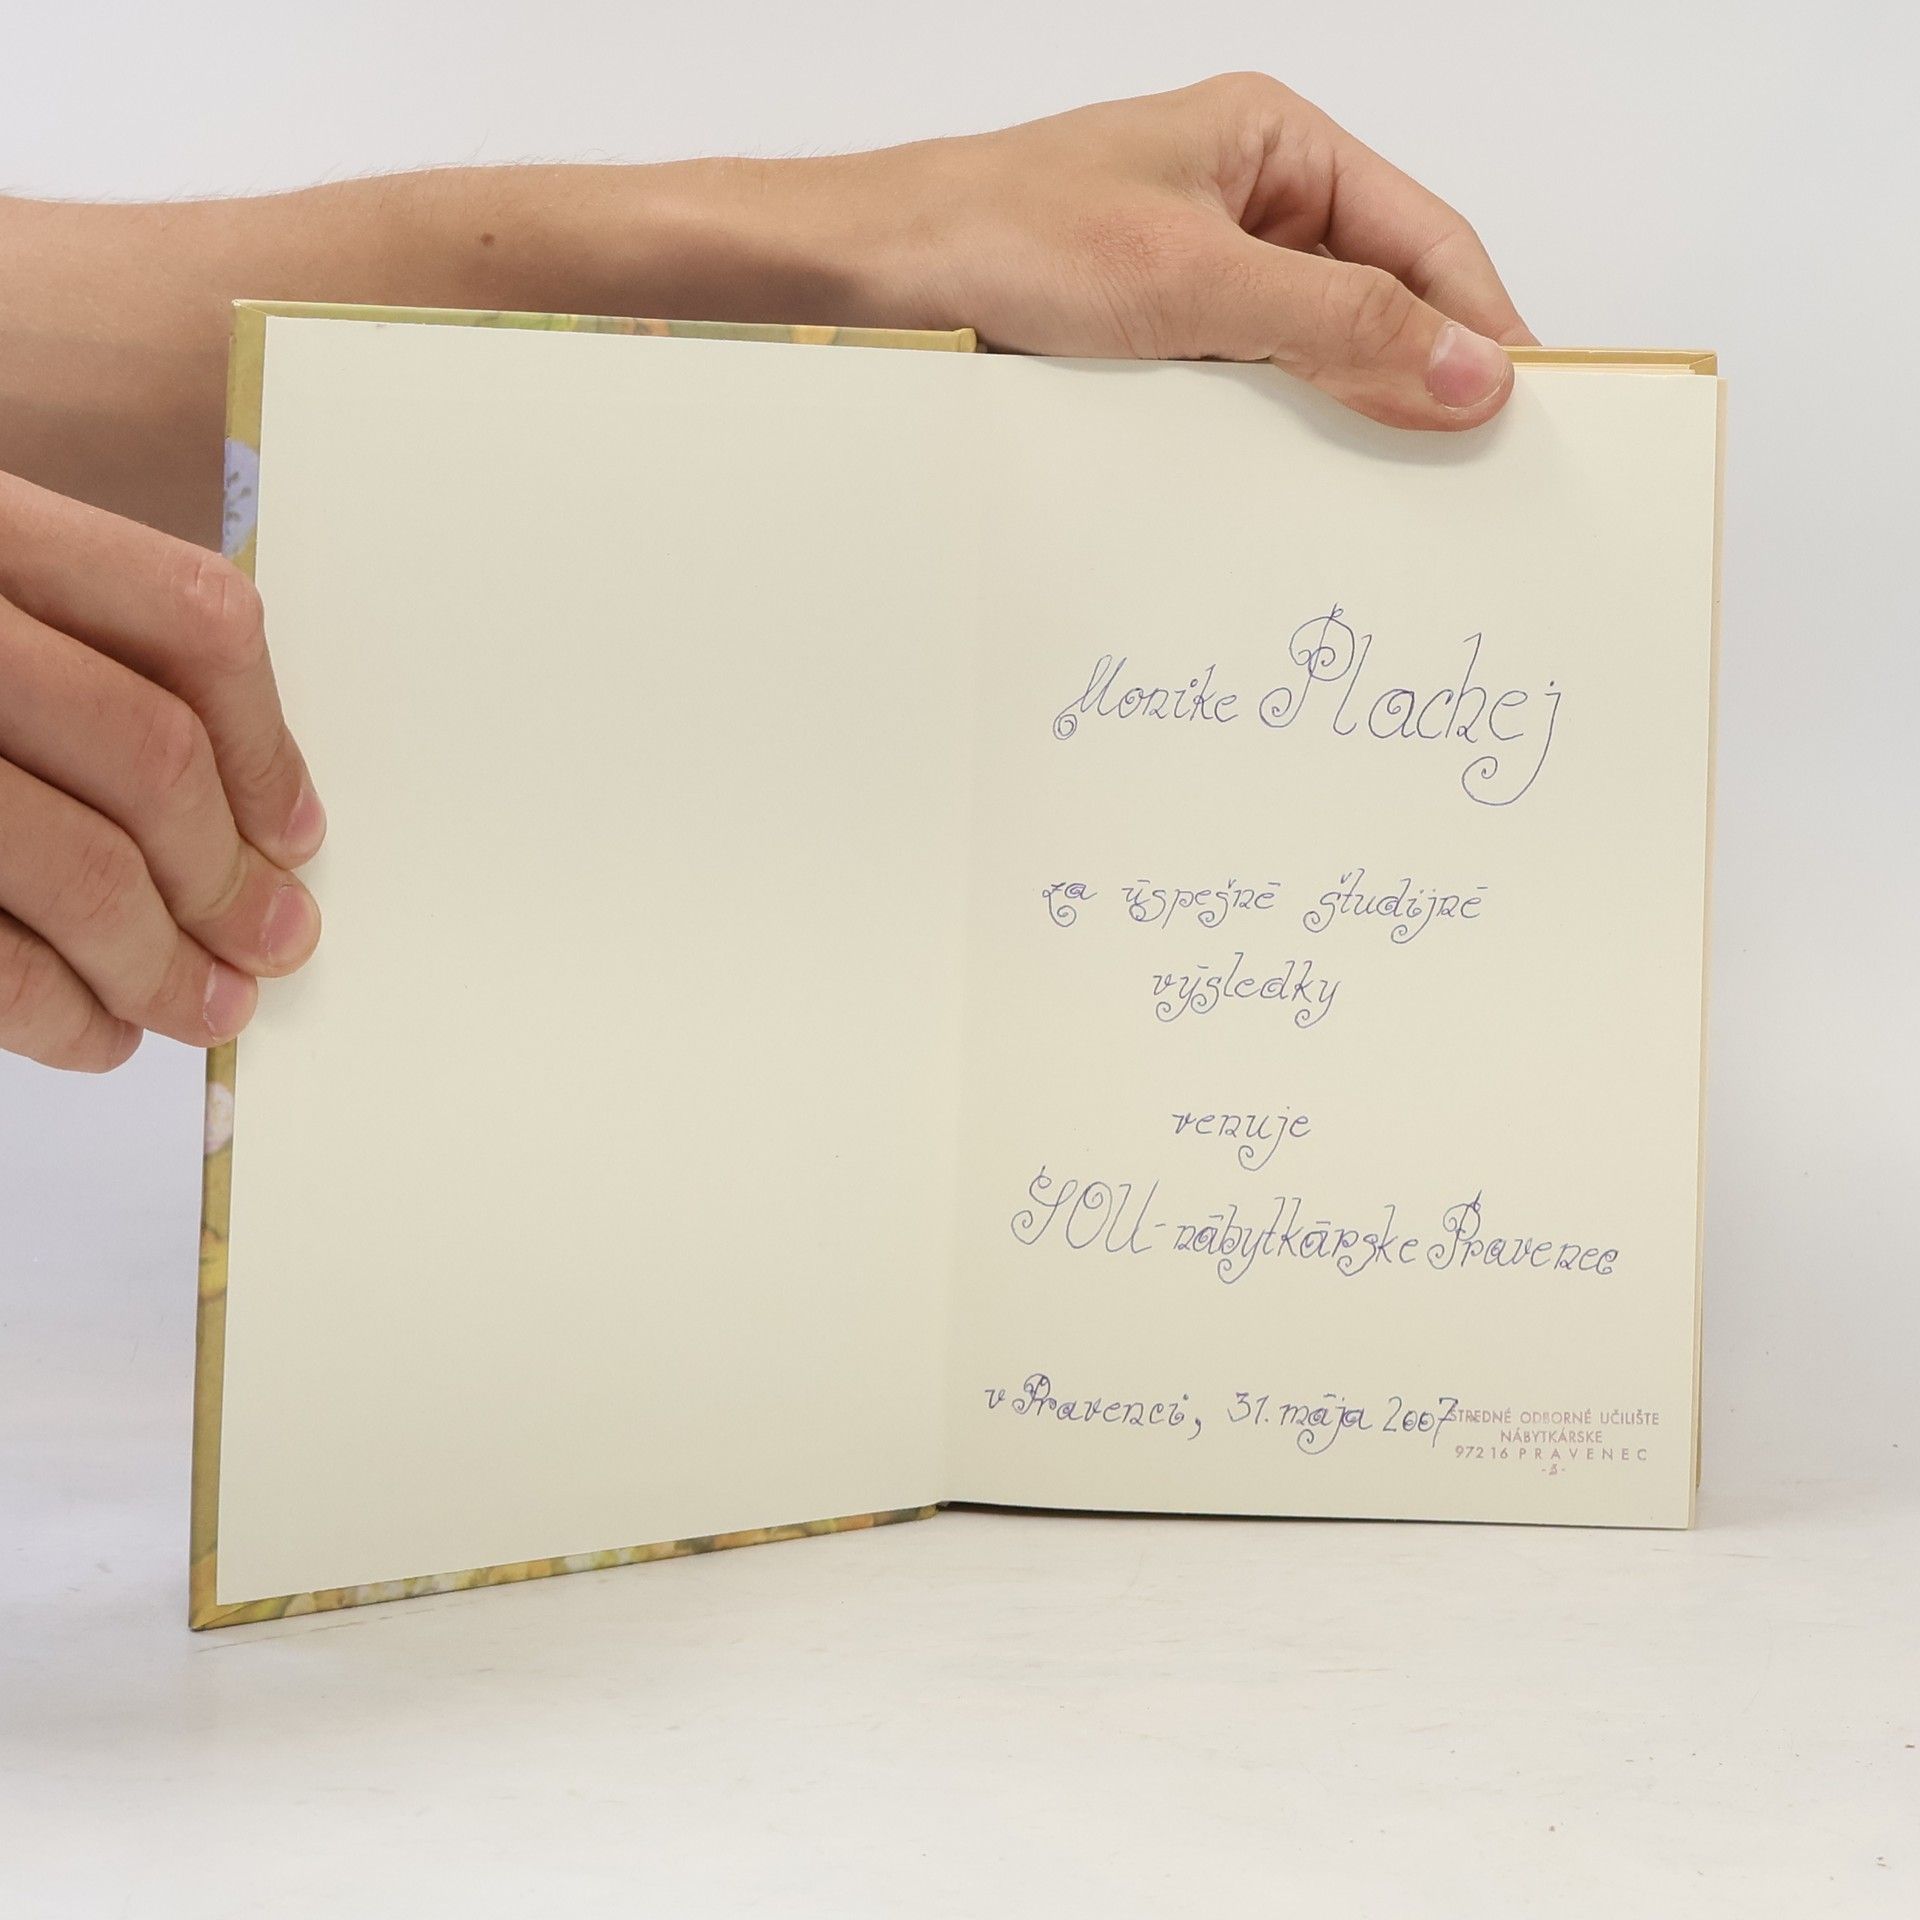 Monike Plachej
za úspešné študijné
výsledky
venuje
SOU - nábytkárske Pravenec
v Pravenci, 31. mája 2007
STREDNÉ ODBORNÉ UČILIŠTE
NÁBYTKÁRSKE
972 16 PRAVENEC
-3-